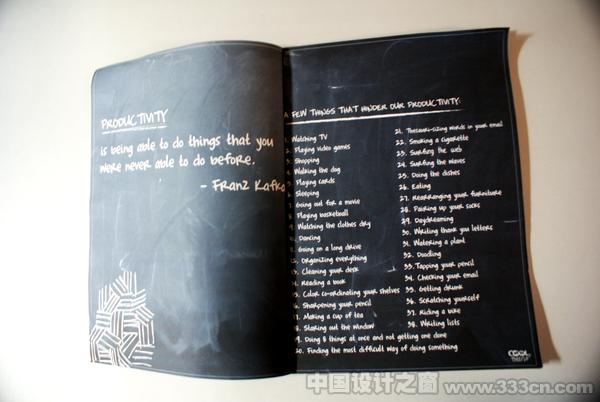 PRODUCTIVITY
is being able to do things that you
were never able to do before.
- Franz Kafka
A FEW THINGS THAT HINDER OUR PRODUCTIVITY:
1. Watching TV
2. Playing video games
3. Shopping
4. Walking the dog
5. Playing cards
6. Sleeping
7. Going out for a movie
8. Playing basketball
9. Watching the clothes dry
10. Dancing
11. Going on a long drive
12. Organizing everything
13. Cleaning your desk
14. Reading a book
15. Color co-ordinating your shelves
16. Sharpening your pencil
17. Making a cup of tea
18. Staring out the window
19. Doing 8 things at once and not getting one done
20. Finding the most difficult way of doing something
21. Thesauri-sizing words in your email
22. Smoking a cigarette
23. Surfing the web
24. Surfing the waves
25. Doing the dishes
26. Eating
27. Rearranging your furniture
28. Pairing up your socks
29. Daydreaming
30. Writing thank you letters
31. Watering a plant
32. Doodling
33. Tapping your pencil
34. Checking your email
35. Getting drunk
36. Scratching yourself
37. Riding a bike
38. Writing lists
COOL
中国设计之窗 www.333cn.com